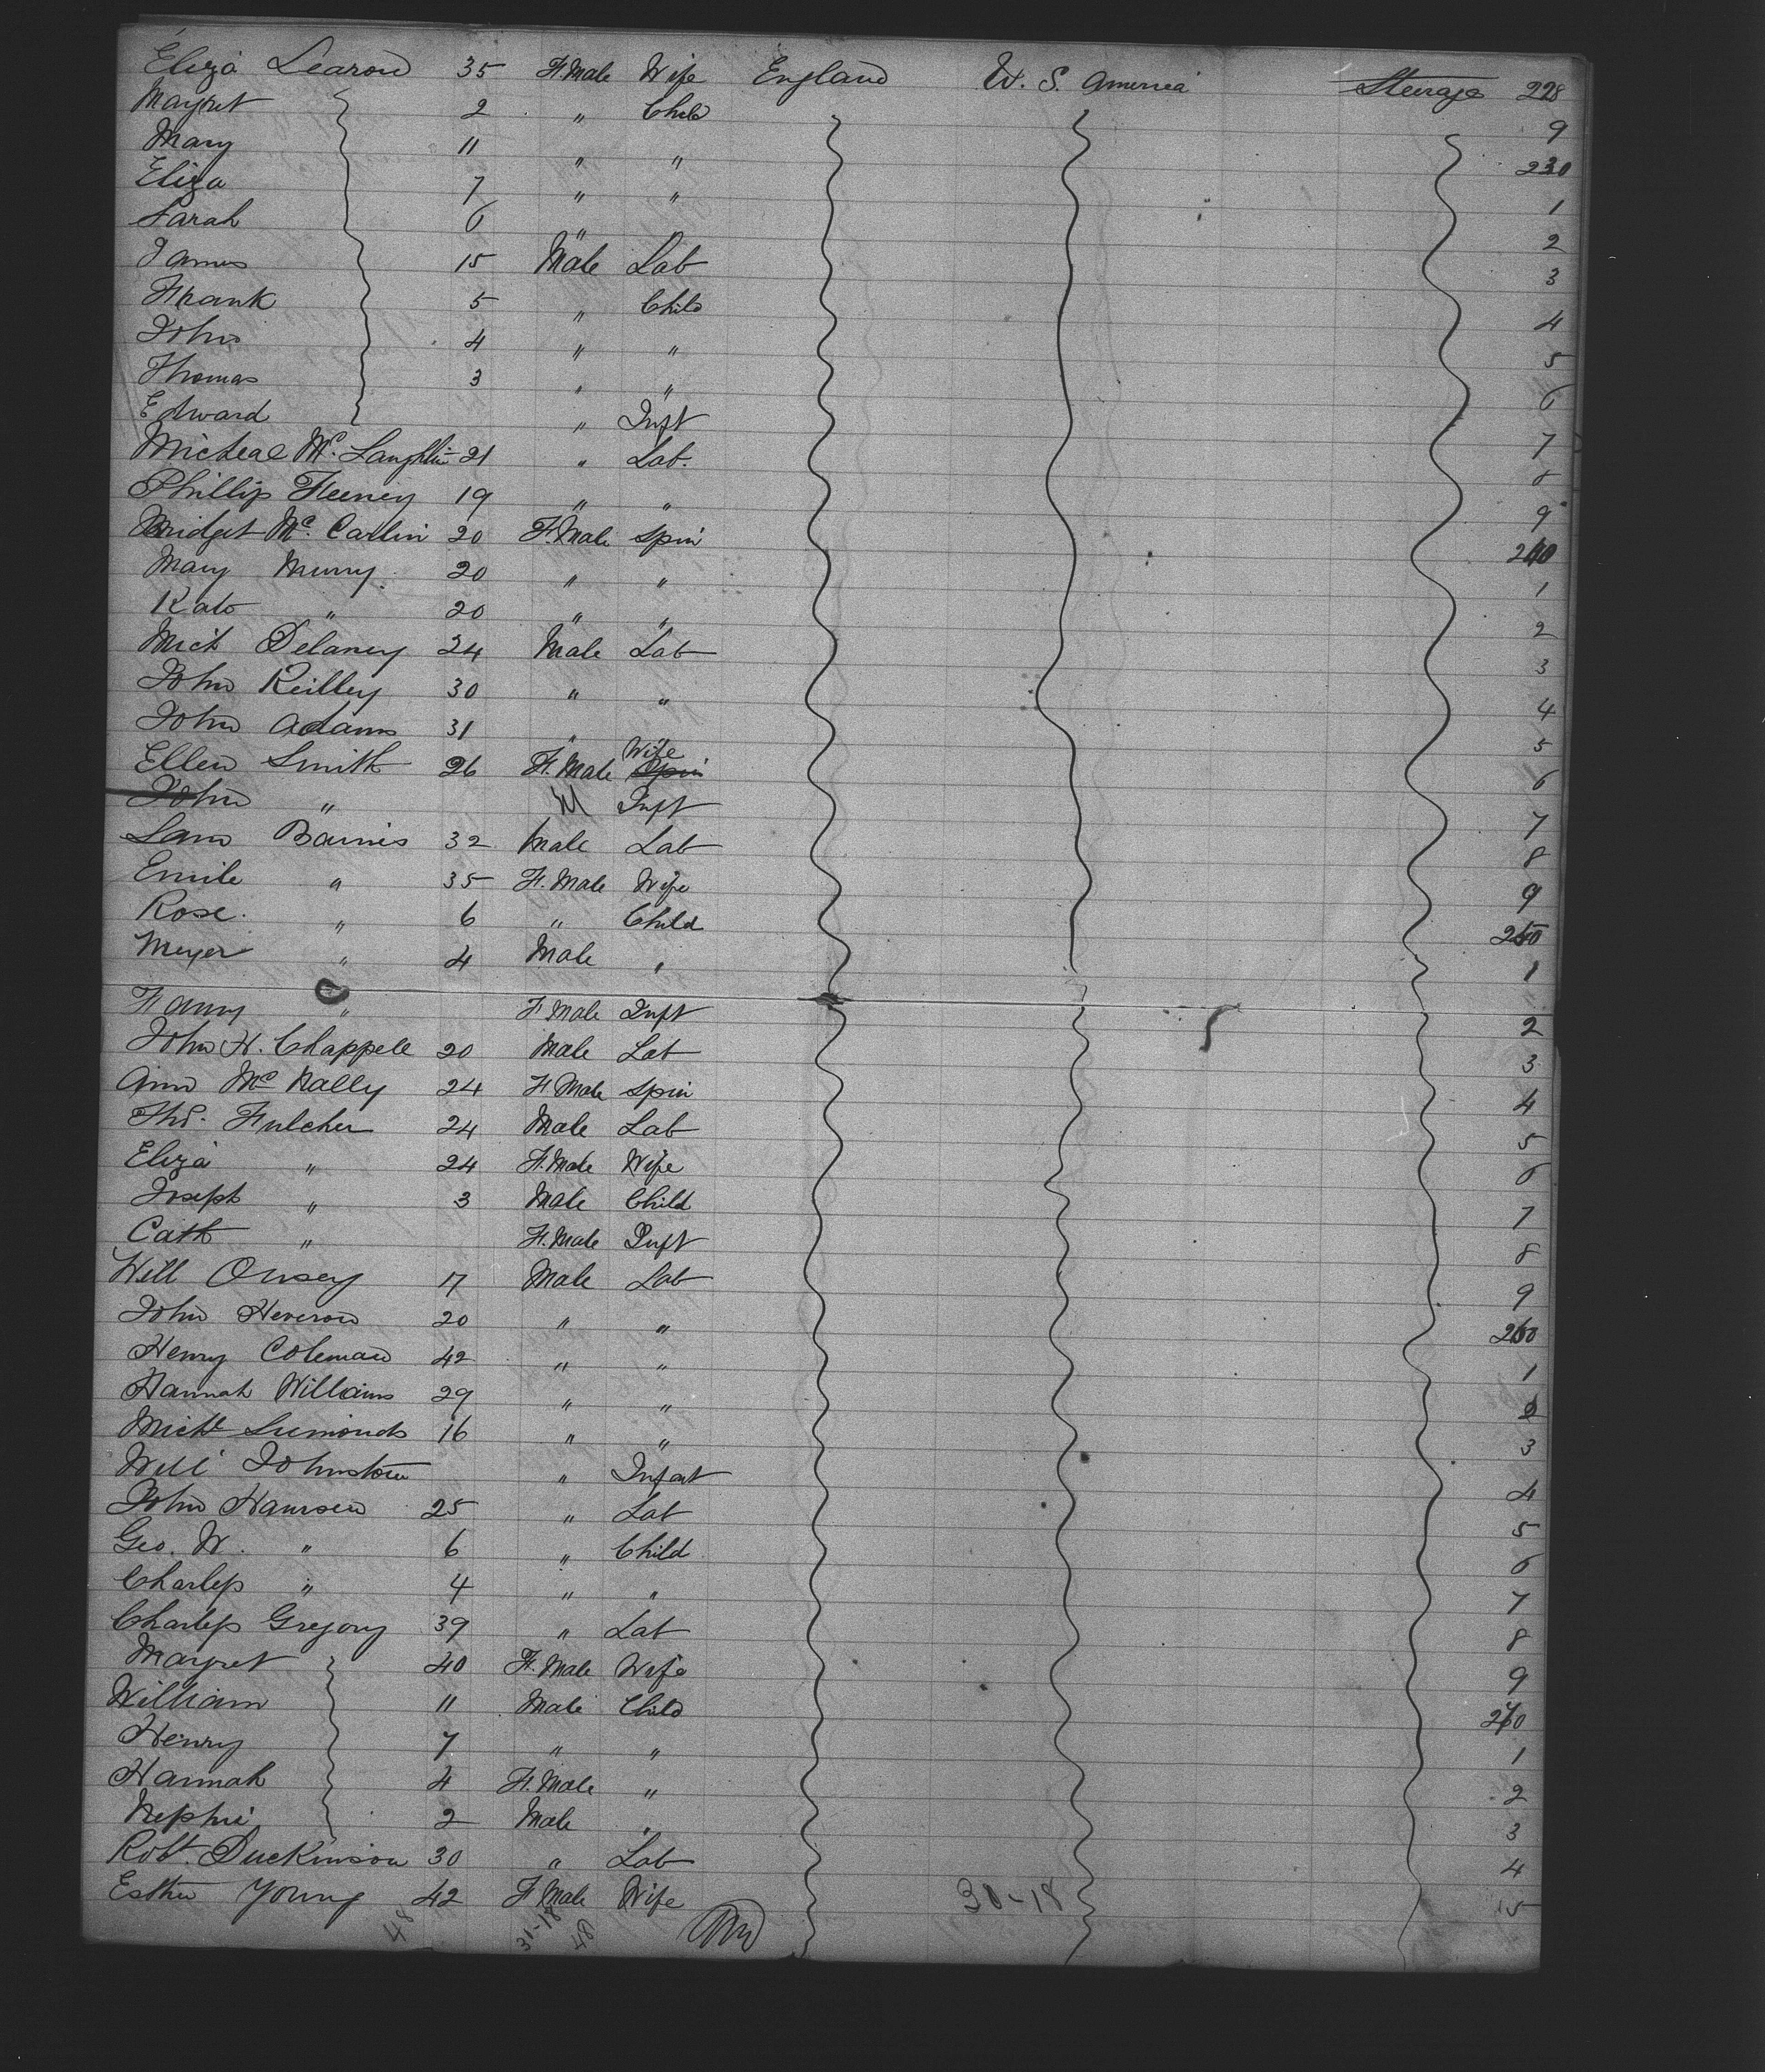 Eliza Learow 35 F.Male Wife England U.S. America Steerage 228
Margret 2 " Child 9
Mary 11 " " 230
Eliza 7 " " 1
Sarah 6 " " 2
James 15 Male Lab 3
Frank 5 " Child 4
John 4 " " 5
Thomas 3 " " 6
Edward " Inft 7
Micheal Mc. Laughlin 21 " Lab. 8
Phillip Feeney 19 " " 9
Bridget Mc. Carlin 20 F.Male Spin 240
Mary Murry 20 " " 1
Kate " 20 " " 2
Mich Delaney 24 Male Lab 3
John Reilley 30 " " 4
John Adams 31 " " 5
Ellen Smith 26 F.Male Wife 6
John " M Inft 7
Sam Barnis 32 Male Lab 8
Emile " 35 F.Male Wife 9
Rose " 6 " Child 250
Meyer " 4 Male " 1
Fanny " F Male Inft 2
John H. Chappell 20 Male Lab 3
Ann Mc Nally 24 F.Male Spin 4
Ths. Fulcher 24 Male Lab 5
Eliza " 24 F.Male Wife 6
Joseph " 3 Male Child 7
Cath " F.Male Inft 8
Will Ousey 17 Male Lab 9
John Heverow 20 " " 260
Henry Coleman 42 " " 1
Hannah Williams 29 " " 2
Michl Simonds 16 " " 3
Will Johnston " Infat 4
John Hansen 25 " Lab 5
Geo. W. " 6 " Child 6
Charles " 4 " " 7
Charles Gregory 39 " Lab 8
Margret 40 F.Male Wife 9
William 11 Male Child 270
Henry 7 " " 1
Hannah 4 F.Male " 2
Nephi 2 Male " 3
Robt. Duckinson 30 " Lab 4
Esther Young 42 F Male Wife 30-18 5
48 31-18 48